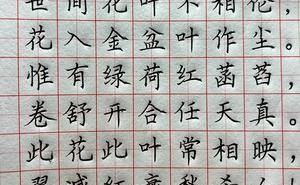 世间花叶不相伦，
花入金盆叶作尘。
惟有绿荷红菡萏，
卷舒开合任天真。
此花此叶常相映，
翠减红衰愁杀人